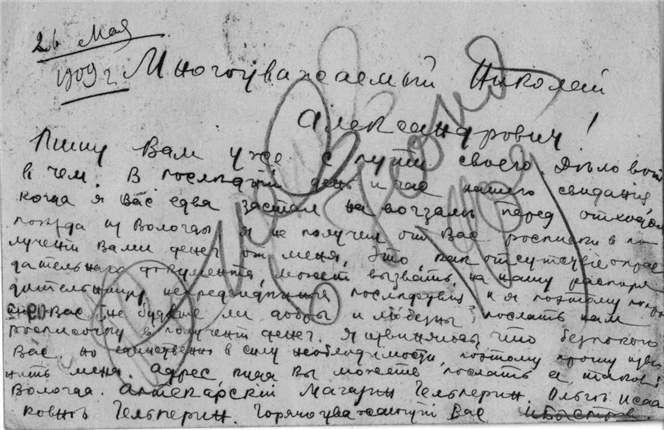 26 Мая
1909 г. Многоуважаемый Николай
Александрович!
Пишу Вам уже с пути своего. Дѣло вот
в чем. В последний день и час нашего свидания,
когда я Вас едва застал на вокзалѣ перед отходом
поезда из Вологды я не получил от Вас росписки в по
лучении Вами денег от меня. Это, как отсутствие оправ
дательнаго документа, может вызвать на нашу распоря
дительницу непредвидѣнныя последствия и я поэтому попро
Вас не будете ли добры и любезны послать нам
росписочку в получении денег. Я извиняюсь, что безпокою
Вас, но единственно в силу необходимости, поэтому прошу изви
нить меня. Адрес, куда Вы можете послать ее, таков:
Вологда. Аптекарский Магазин Гельперин. Ольгѣ Исаа
ковнѣ Гельперин. Горячо уважающий Вас